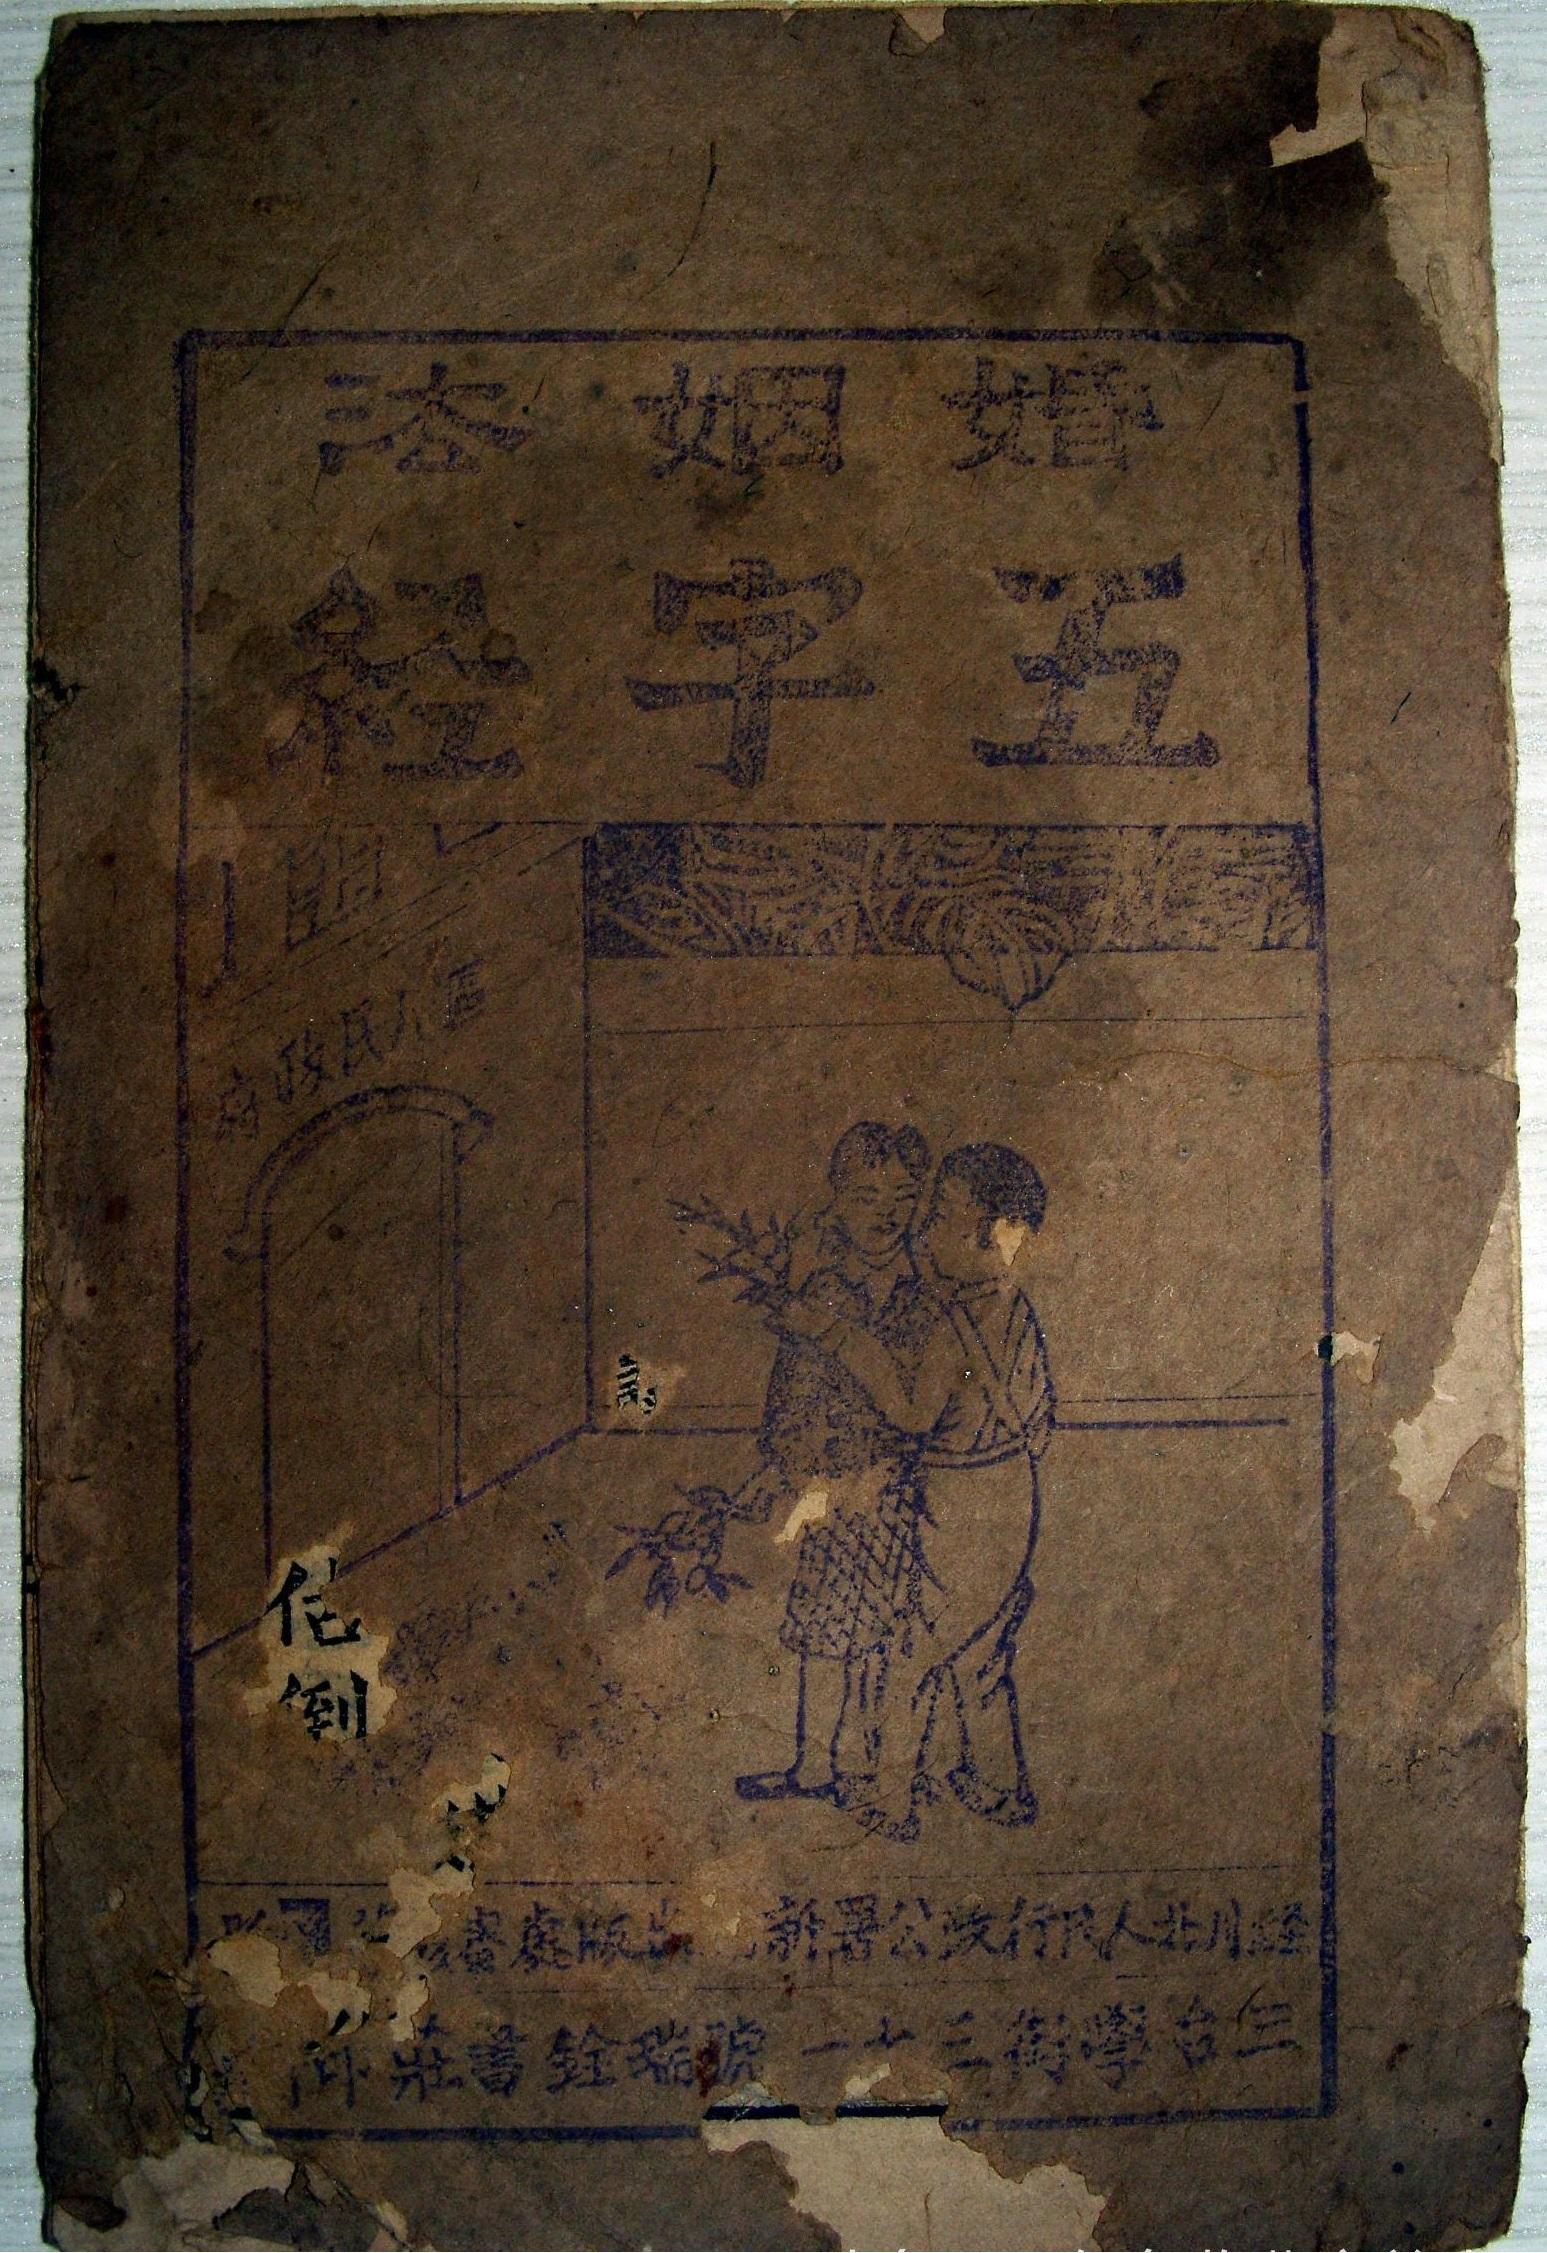 婚姻法
五字経
区人民政府
經川北人民行政公署新 出版處審
三台學街三十一號瑞銓書莊印
佗
倒